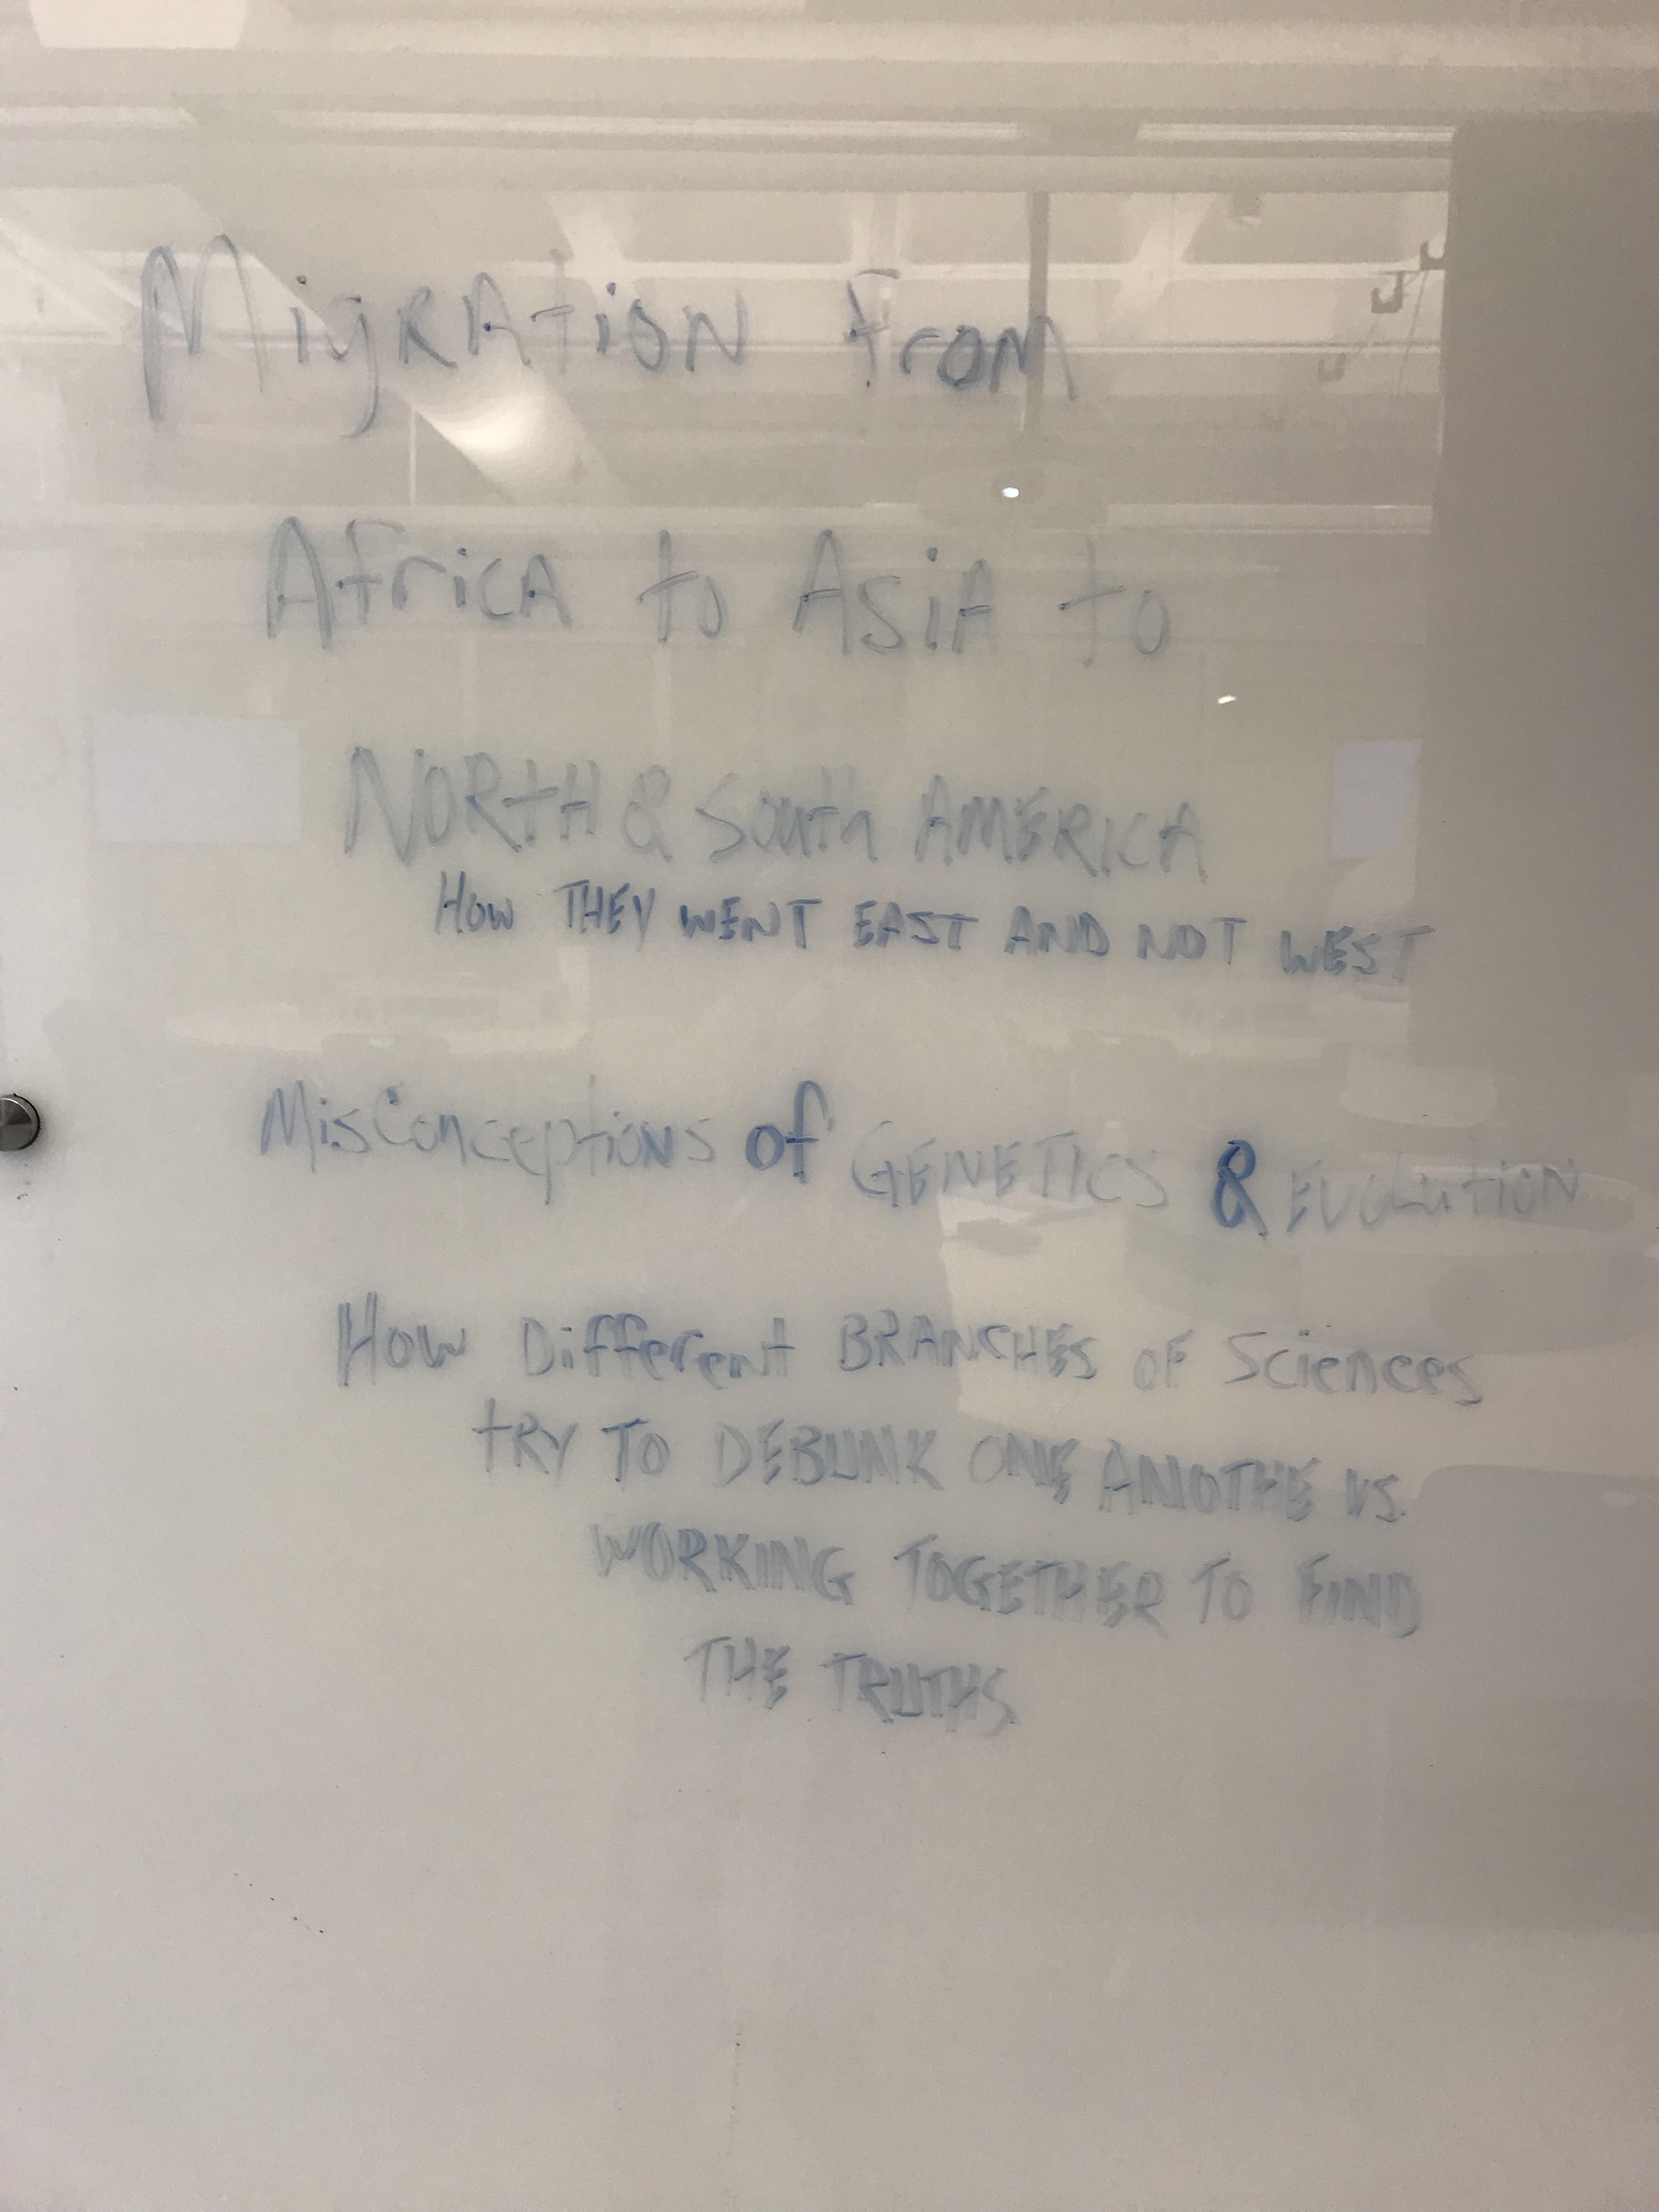 MigRAtiON from
AfricA to AsiA to
NORtH & South AMERICA
How THEY WENT EAST AND NOT WEST
MisConceptions of GENETICS & EVOLUTION
How Different BRANCHES OF Sciences
tRY TO DEBUNK ONE ANOTHE VS.
WORKING TOGETHER TO FIND
THE TRUTHS